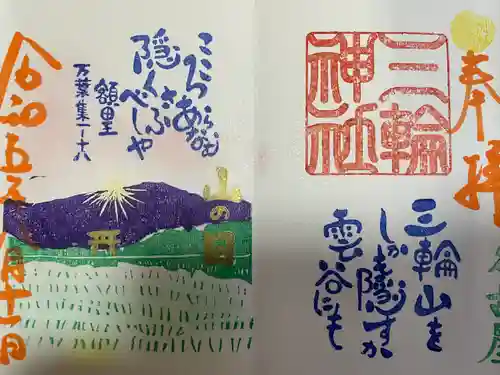 奉拝
名古屋
三輪
神社
三輪山を
しかも隠すか
雲谷にも
こころあらなむ
隠くさふべしや
額田王
万葉集1-18
山の日
令和五年八月十一日